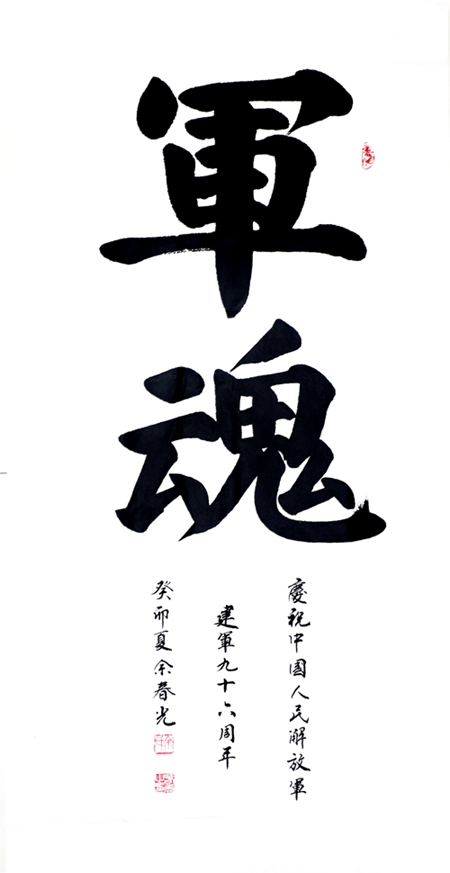 軍魂
慶祝中國人民解放軍
建軍九十六周年
癸卯夏余春光